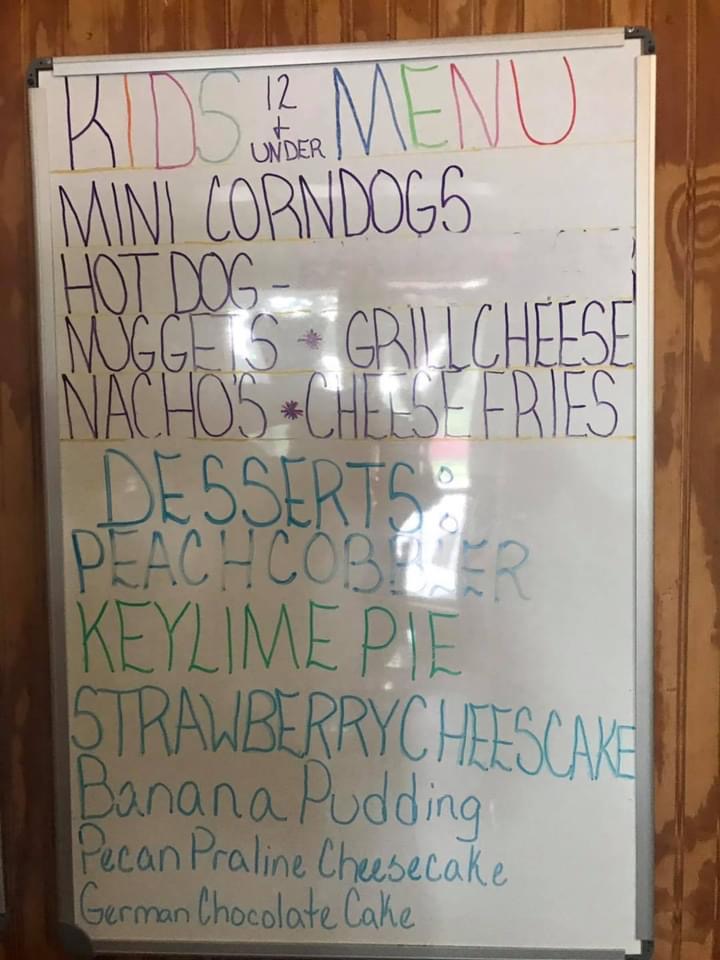 KIDS 12 + UNDER MENU
MINI CORNDOGS
HOT DOG -
NUGGETS * GRILLCHEESE
NACHO'S * CHEESE FRIES
DESSERTS:
PEACH COBBLER
KEYLIME PIE
STRAWBERRY CHEESCAKE
Banana Pudding
Pecan Praline Cheesecake
German Chocolate Cake